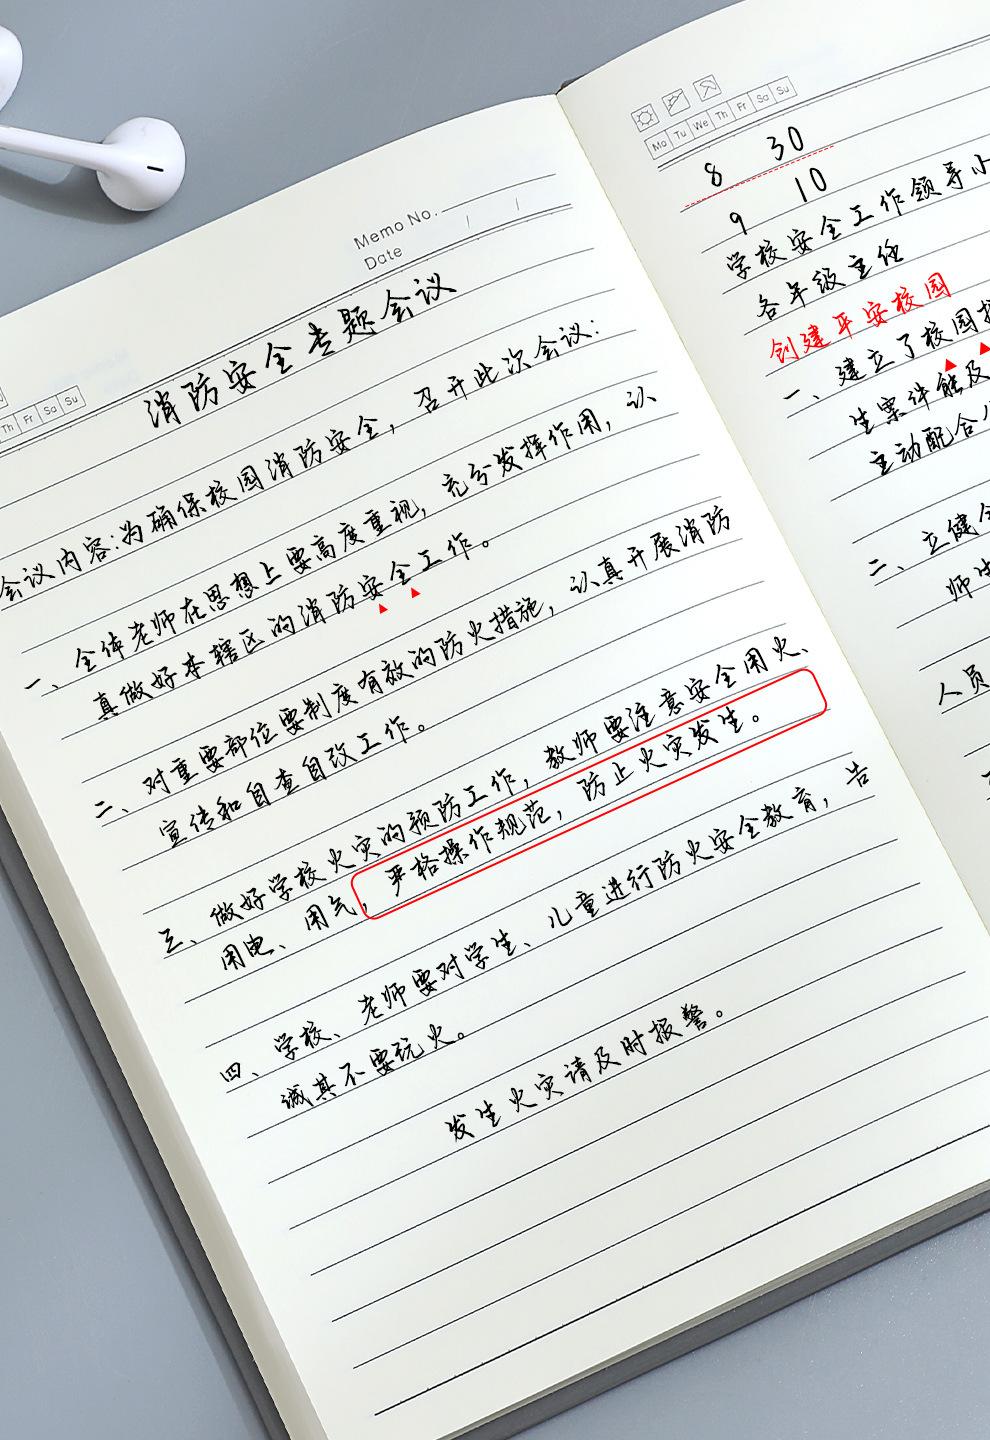 Memo No.
Date / /
Th Fr Sa Su
消防安全专题会议
会议内容:为确保校园消防安全，召开此次会议:
一、全体老师在思想上要高度重视，充分发挥作用，认
真做好本辖区的消防安全工作。
二、对重要部位要制度有效的防火措施，认真开展消防
宣传和自查自改工作。
三、做好学校火灾的预防工作，教师要注意安全用火、
用电、用气，严格操作规范，防止火灾发生。
四、学校、老师要对学生、儿童进行防火安全教育，告
诫其不要玩火。
发生火灾请及时报警。
Mo Tu We Th Fr Sa Su
8 30
9 10
学校安全工作领导小
各年级主任
创建平安校园
一、建立了校园
生案件能及
主动配合
二、立健全
师生
人员